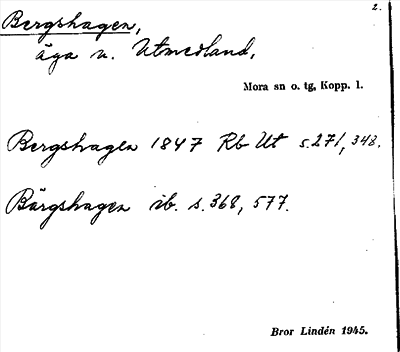 2.
Bergshagen,
äga u. Utmedland,
Mora sn o. tg, Kopp. l.
Bergshagen 1847 Rb Ut s. 271, 348.
Bärgshagen ib. s. 368, 577.
Bror Lindén 1945.